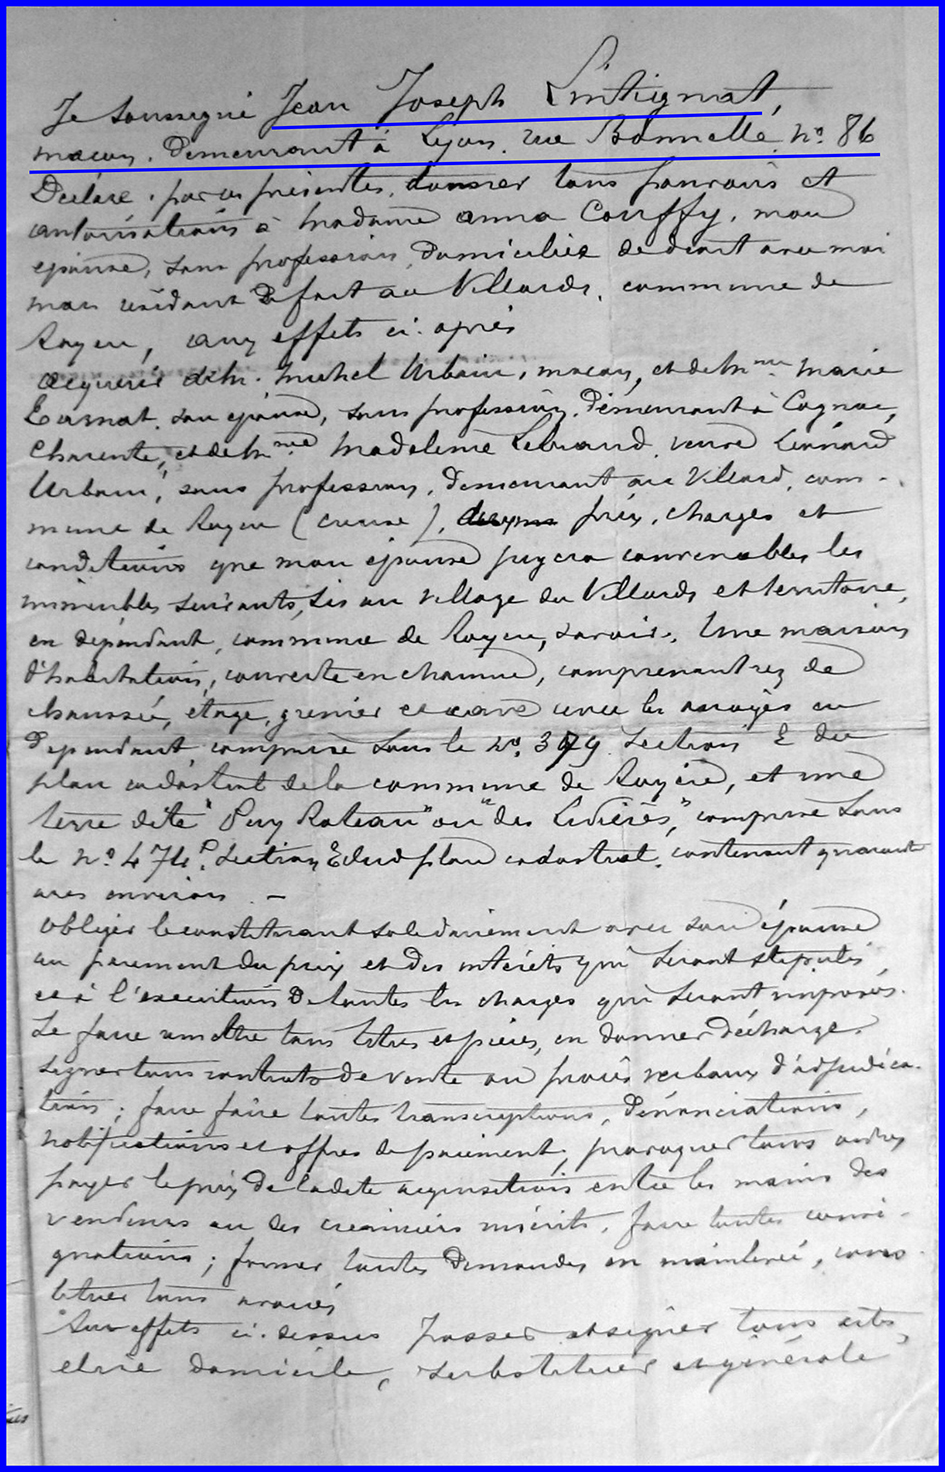 Je soussigné Jean Joseph Lintignat,
maçon, demeurant à Lyon, rue Bonnelle, n° 86
Déclare par ces présentes, donner tous pouvoirs et
autorisations à Madame Anna Couffy, mon
épouse, sans profession, domiciliée de droit avec moi
mais résidant de fait au Villards, commune de
Royère, aux effets ci-après
acquérir de M. Michel Urbain, maçon, et de Mme Marie
son épouse, sans profession, demeurant à Cognac,
Charente, et de Mme Madeleine veuve Léonard
Urbain, sans profession, demeurant au Villard, com-
mune de Royère (Creuse), prix, charges et
conditions que mon épouse jugera convenables les
immeubles suivants, sis au village du Villards et territoire,
en dépendant, commune de Royère, savoir. Une maison
d'habitation, couverte en chaume, comprenant rez de
chaussée, étage, grenier et cave avec les en
dépendant comprise sous le n° 379 Section E du
plan cadastral de la commune de Royère, et une
terre dite "Puy Rateau" ou "des comprise sous
le n° 474 P. Section E dudit plan cadastral, contenant quarante
ares environ. —
Obliger le constituant solidairement avec son épouse
au paiement du prix et des intérêts qui seront stipulés
et à l'exécution de toutes les charges qui seront imposées.
Se faire remettre tous titres et pièces, en donner décharge.
Signer tous contrats de vente ou procès verbaux d'adjudica-
tion; faire faire toutes transcriptions, dénonciations,
notifications et offres de paiement, provoquer tous ordres
payer le prix de ladite acquisition entre les mains des
vendeurs ou des créanciers inscrits, faire toutes consi-
gnations; former toutes demandes en mainlevée, cons-
tituer tous avoués
Aux effets ci-dessus passer et signer tous actes,
élire domicile, substituer et générale